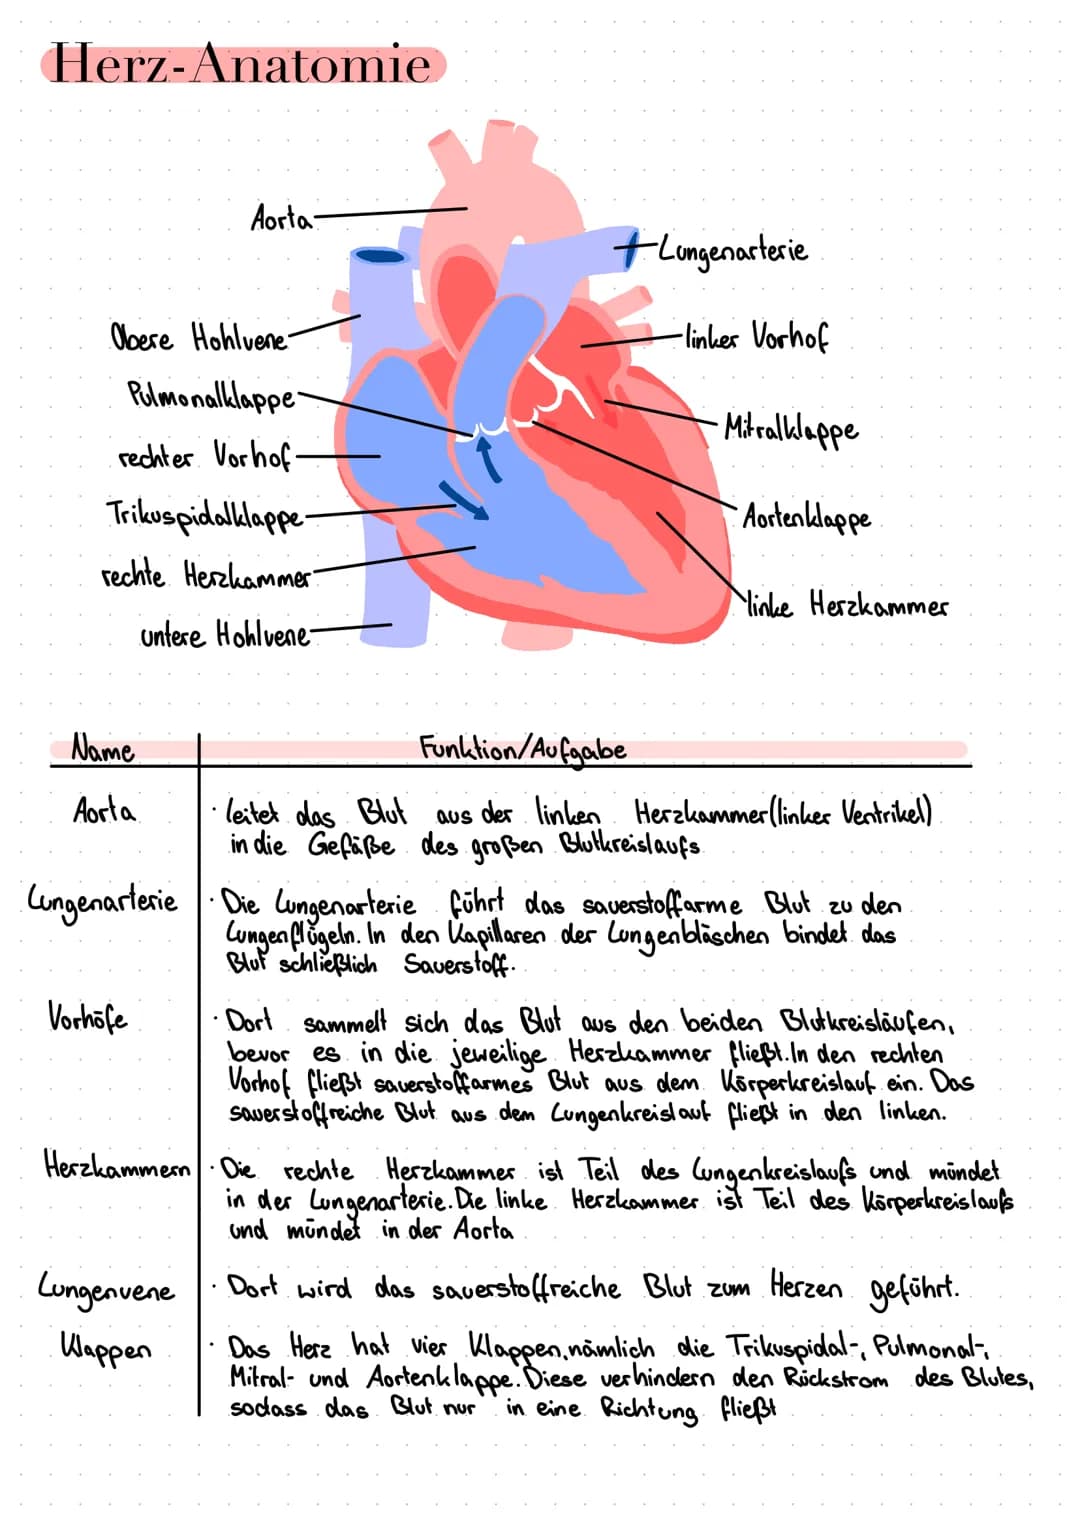 Herz-Anatomie
Aorta
Lungenarterie
Obere Hohlvene
linker Vorhof
Pulmonalklappe
Mitralklappe
rechter Vorhof
Trikuspidalklappe
Aortenklappe
rechte Herzkammer
linke Herzkammer
untere Hohlvene
Name Funktion/Aufgabe
Aorta · leitet das Blut aus der linken Herzkammer(linker Ventrikel)
in die Gefäße des großen Blutkreislaufs
Lungenarterie · Die Lungenarterie führt das sauerstoffarme Blut zu den
Lungenflügeln. In den Kapillaren der Lungenbläschen bindet das
Blut schließlich Sauerstoff.
Vorhöfe · Dort sammelt sich das Blut aus den beiden Blutkreisläufen,
bevor es in die jeweilige Herzkammer fließt. In den rechten
Vorhof fließt sauerstoffarmes Blut aus dem Körperkreislauf ein. Das
sauerstoffreiche Blut aus dem Lungenkreislauf fließt in den linken.
Herzkammern · Die rechte Herzkammer ist Teil des Lungenkreislaufs und mündet
in der Lungenarterie. Die linke Herzkammer ist Teil des Körperkreislaufs
und mündet in der Aorta
Lungenvene · Dort wird das sauerstoffreiche Blut zum Herzen geführt.
Klappen · Das Herz hat vier Klappen, nämlich die Trikuspidal-, Pulmonal-,
Mitral- und Aortenklappe. Diese verhindern den Rückstrom des Blutes,
sodass das Blut nur in eine Richtung fließt